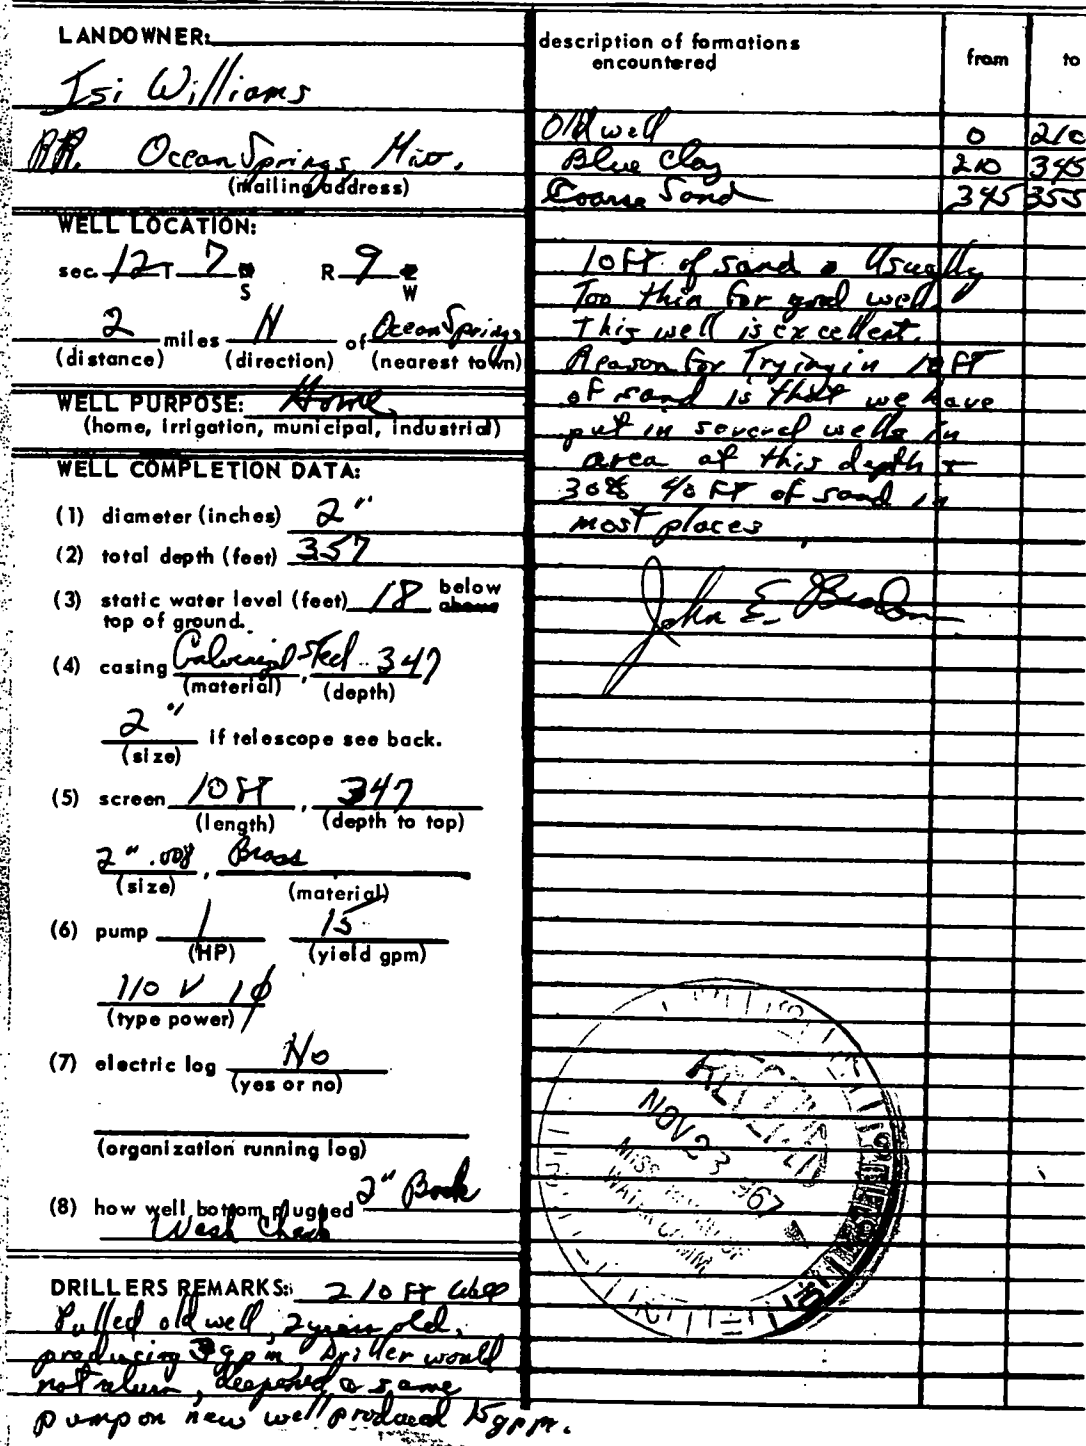 LANDOWNER:
Isi Williams
RR. Ocean Springs, Miss.
(mailing address)
WELL LOCATION:
sec. 12 T 7 N S R 9 E W
2 miles N of Ocean Springs
(distance) (direction) (nearest town)
WELL PURPOSE: Home
(home, irrigation, municipal, industrial)
WELL COMPLETION DATA:
(1) diameter (inches) 2"
(2) total depth (feet) 357
(3) static water level (feet) 18 below above
top of ground.
(4) casing Galvanized Steel, 347
(material) (depth)
2" if telescope see back.
(size)
(5) screen 10 FT, 347
(length) (depth to top)
2" .008, Brass
(size) (material)
(6) pump 1 15
(HP) (yield gpm)
110 V 1φ
(type power)
(7) electric log No
(yes or no)
(organization running log)
(8) how well bottom plugged 2" Back
Wash Check
DRILLERS REMARKS: 210 FT Well
Pulled old well, 2 years old,
producing 3 gpm, Driller would
not return, deepened & same
pump on new well produced 15 gpm.
description of formations
encountered from to
Old well 0 210
Blue Clay 210 345
Coarse Sand 345 355
10 FT of sand is Usually
Too thin for good well.
This well is excellent.
Reason for Trying in 10 FT
of sand is that we have
put in several wells in
area at this depth &
30 & 40 FT of sand in
most places
John E.
NOV 23 1967
MISS
WATER COMM.